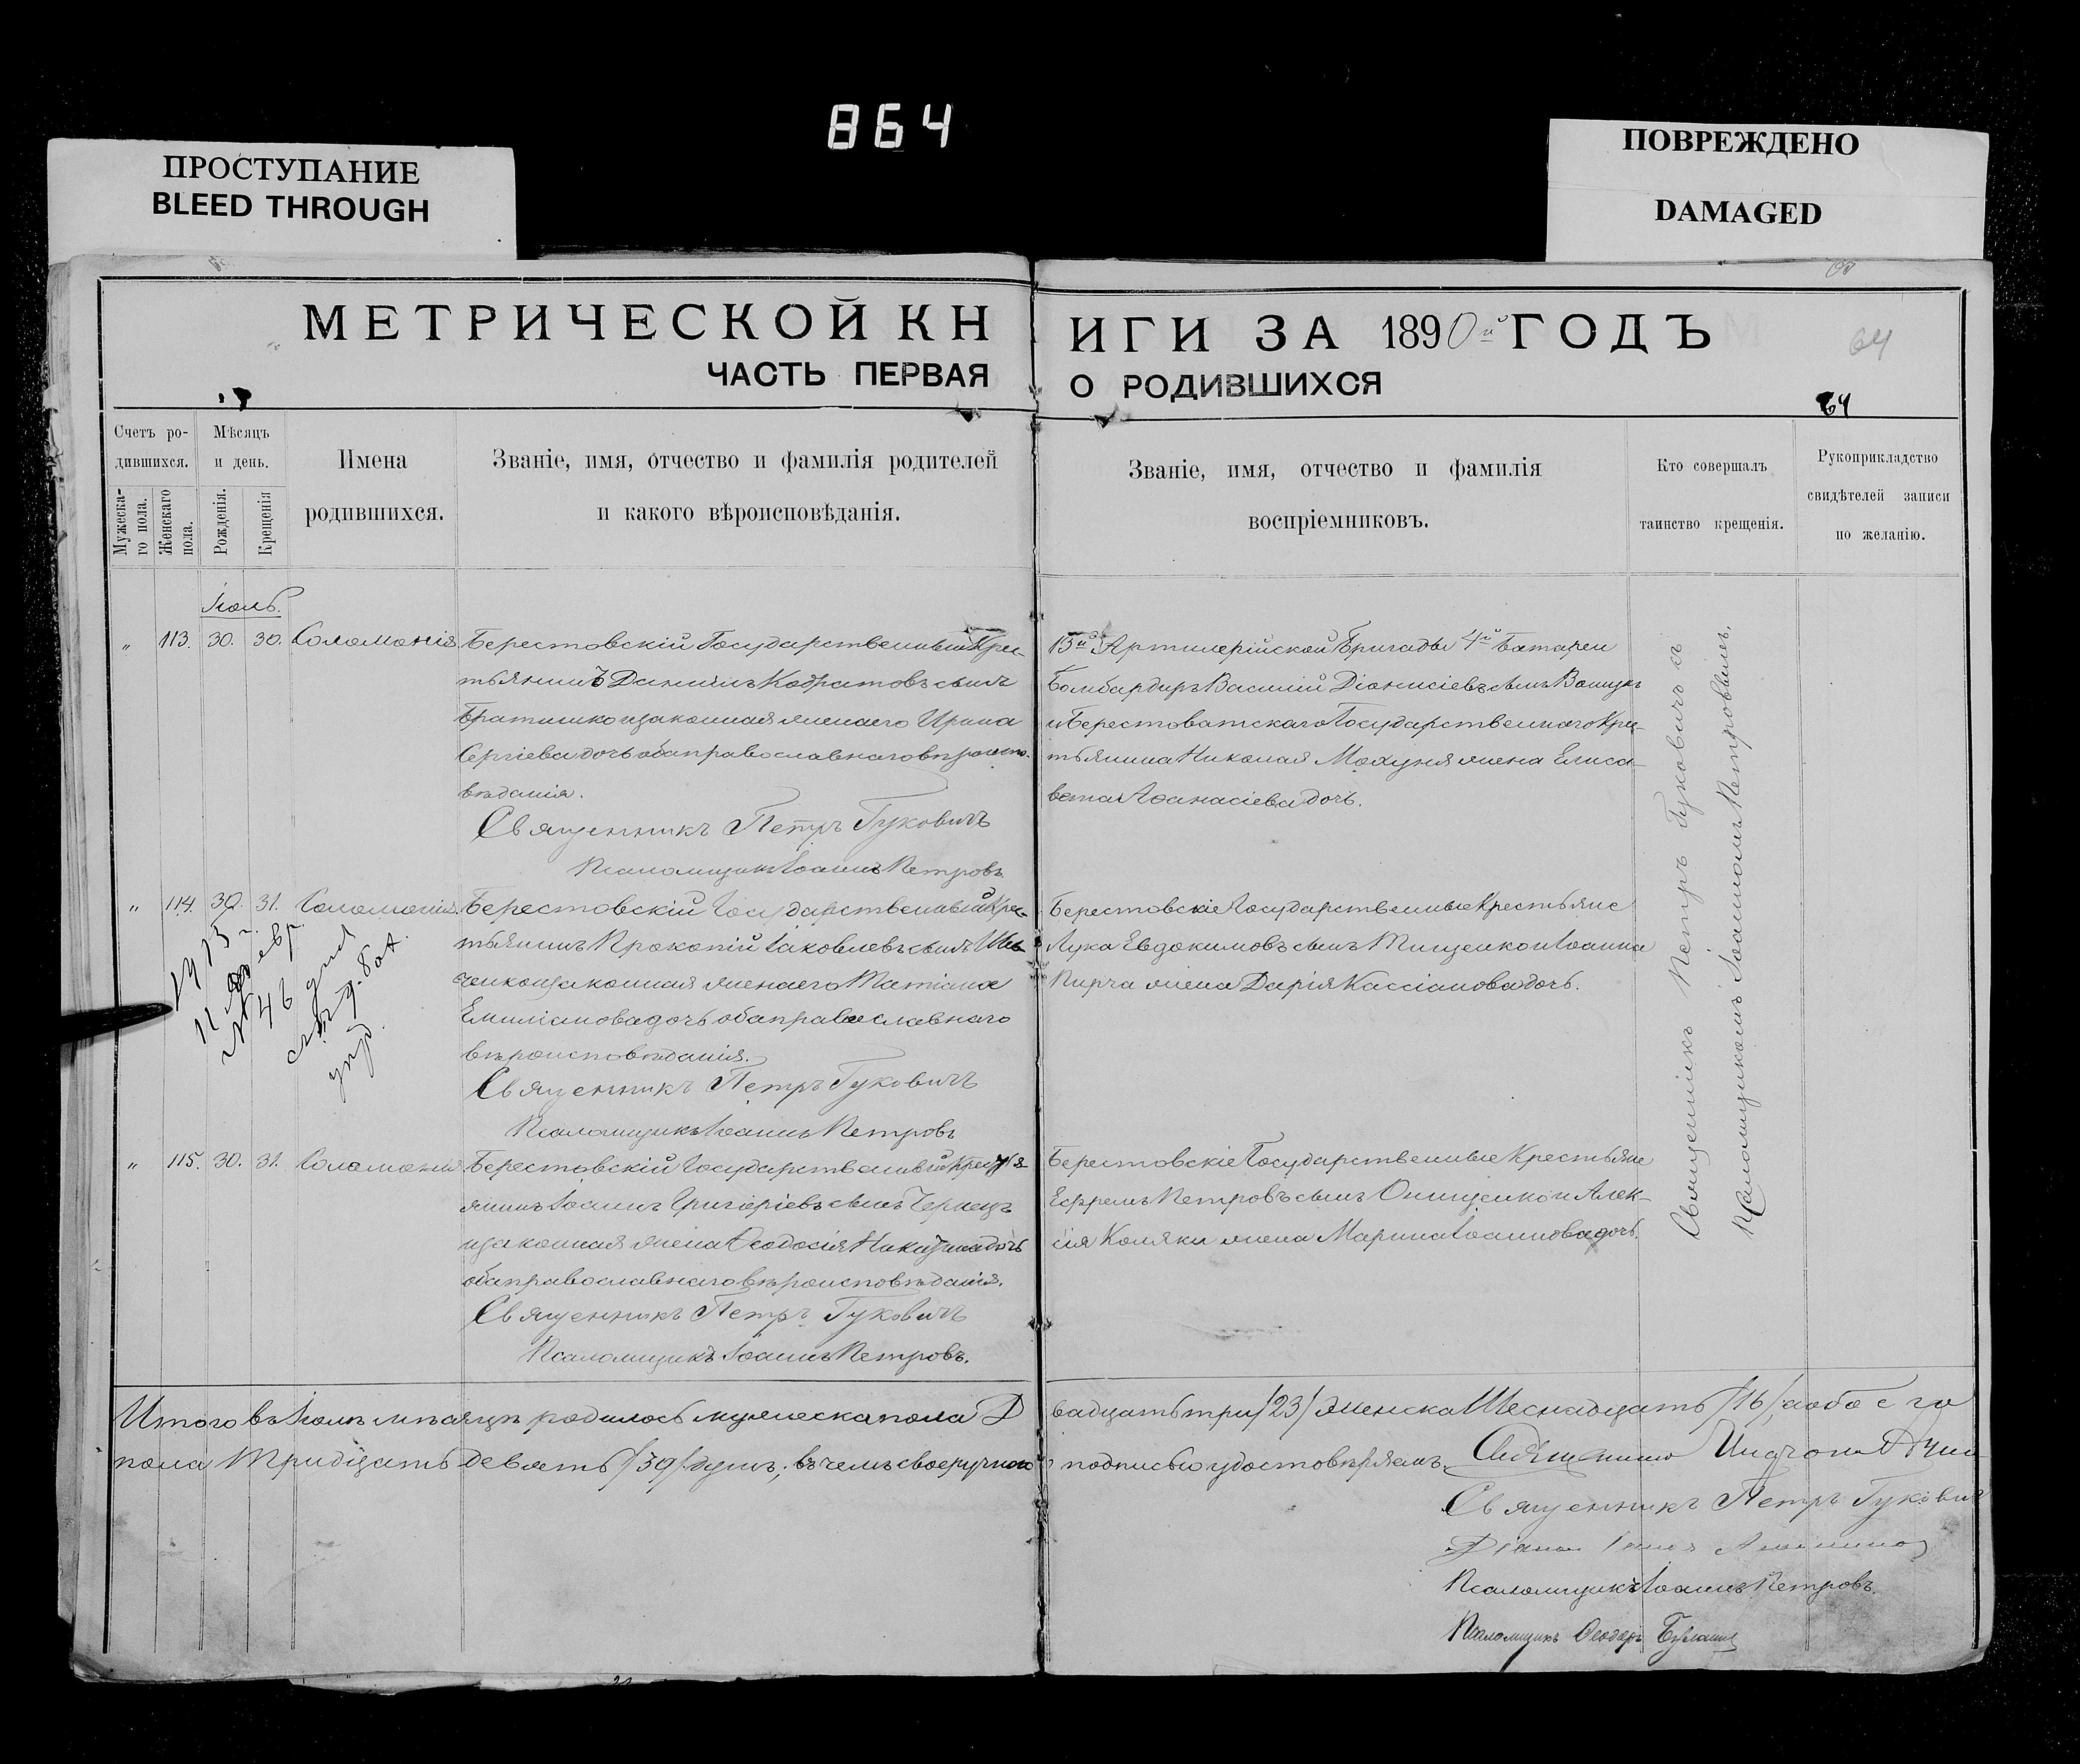 864
ПРОСТУПАНИЕ
BLEED THROUGH
ПОВРЕЖДЕНО
DAMAGED
МЕТРИЧЕСКОЙ КН
ИГИ ЗА 1890й ГОДЪ
64
ЧАСТЬ ПЕРВАЯ
О РОДИВШИХСЯ
64
Счетъ ро-
дившихся.
Мужеска-
го пола.
Женскаго
пола.
Мѣсяцъ
и день.
Рожденія.
Крещенія
Имена
родившихся.
Званіе, имя, отчество и фамилія родителей
и какого вѣроисповѣданія.
Званіе, имя, отчество и фамилія
воспріемниковъ.
Кто совершалъ
таинство крещенія.
Рукоприкладство
свидѣтелей записи
по желанію.
Іюль.
" 113. 30. 30. Соломонія.
Берестовскій Государственный Крес-
тьянинъ Даніилъ Кодратовъ сынъ
и законная жена его Ирина
Сергіева дочь оба православнаго вѣроиспо-
вѣданія.
Священникъ Петръ Гуковичъ
Псаломщикъ Іоаннъ Петровъ
Артилерійской Бригады 4й Батареи
Бомбардиръ Василій Діонисіевъ сынъ
и Берестоватскаго Государственнаго Крес-
тьянина Николая жена Елиса-
вета Аѳанасіева дочь.
" 114. 30. 31. Соломонія.
Берестовскій Государственный Крес-
тьянинъ Прокопій Іаковлевъ сынъ Шев-
ченко и законная жена его Татіана
Емиліанова дочь оба православнаго
вѣроисповѣданія.
Священникъ Петръ Гуковичъ
Псаломщикъ Іоаннъ Петровъ
Берестовскіе Государственные Крестьяне
Лука Евдокимовъ сынъ Тищенко и Іоанна
Пирча жена Дарія Кассіанова дочь.
1913 г.
11 февр.
№ 46
" 115. 30. 31. Соломонія.
Берестовскій Государственный Крестья-
янинъ Іоаннъ Григоріевъ сынъ Чернецъ
и законная жена Ѳеодосія Никитина дочь
оба православнаго вѣроисповѣданія.
Священникъ Петръ Гуковичъ
Псаломщикъ Іоаннъ Петровъ.
Берестовскіе Государственные Крестьяне
Ефремъ Петровъ сынъ Онищенко и Алек-
сія Коляки жена Марина Іоаннова дочь.
Священникъ Петръ Гуковичъ съ
Псаломщикомъ Іоанномъ Петровымъ.
Итого въ Іюлѣ мѣсяцѣ родилось мужеска пола Д
вадцать три /23/ женска Шеснадцать /16/, а обоего
пола Тридцать Девять /39/ душъ; въ чемъ своеручною
подписью удостовѣряемъ.
Священникъ Петръ Гукович
Псаломщикъ Іоаннъ Петровъ.
Псаломщикъ Ѳеодоръ